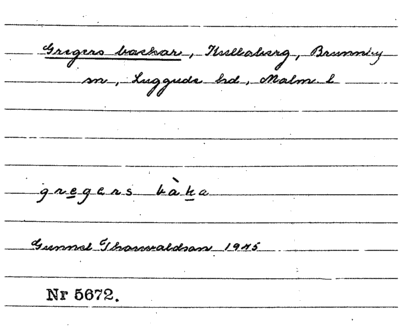 Gregers backar, Kullaberg, Brunnby
sn, Luggude hd, Malm. l
gregers bàka
Gunnel Thorvaldson 1945
Nr 5672.